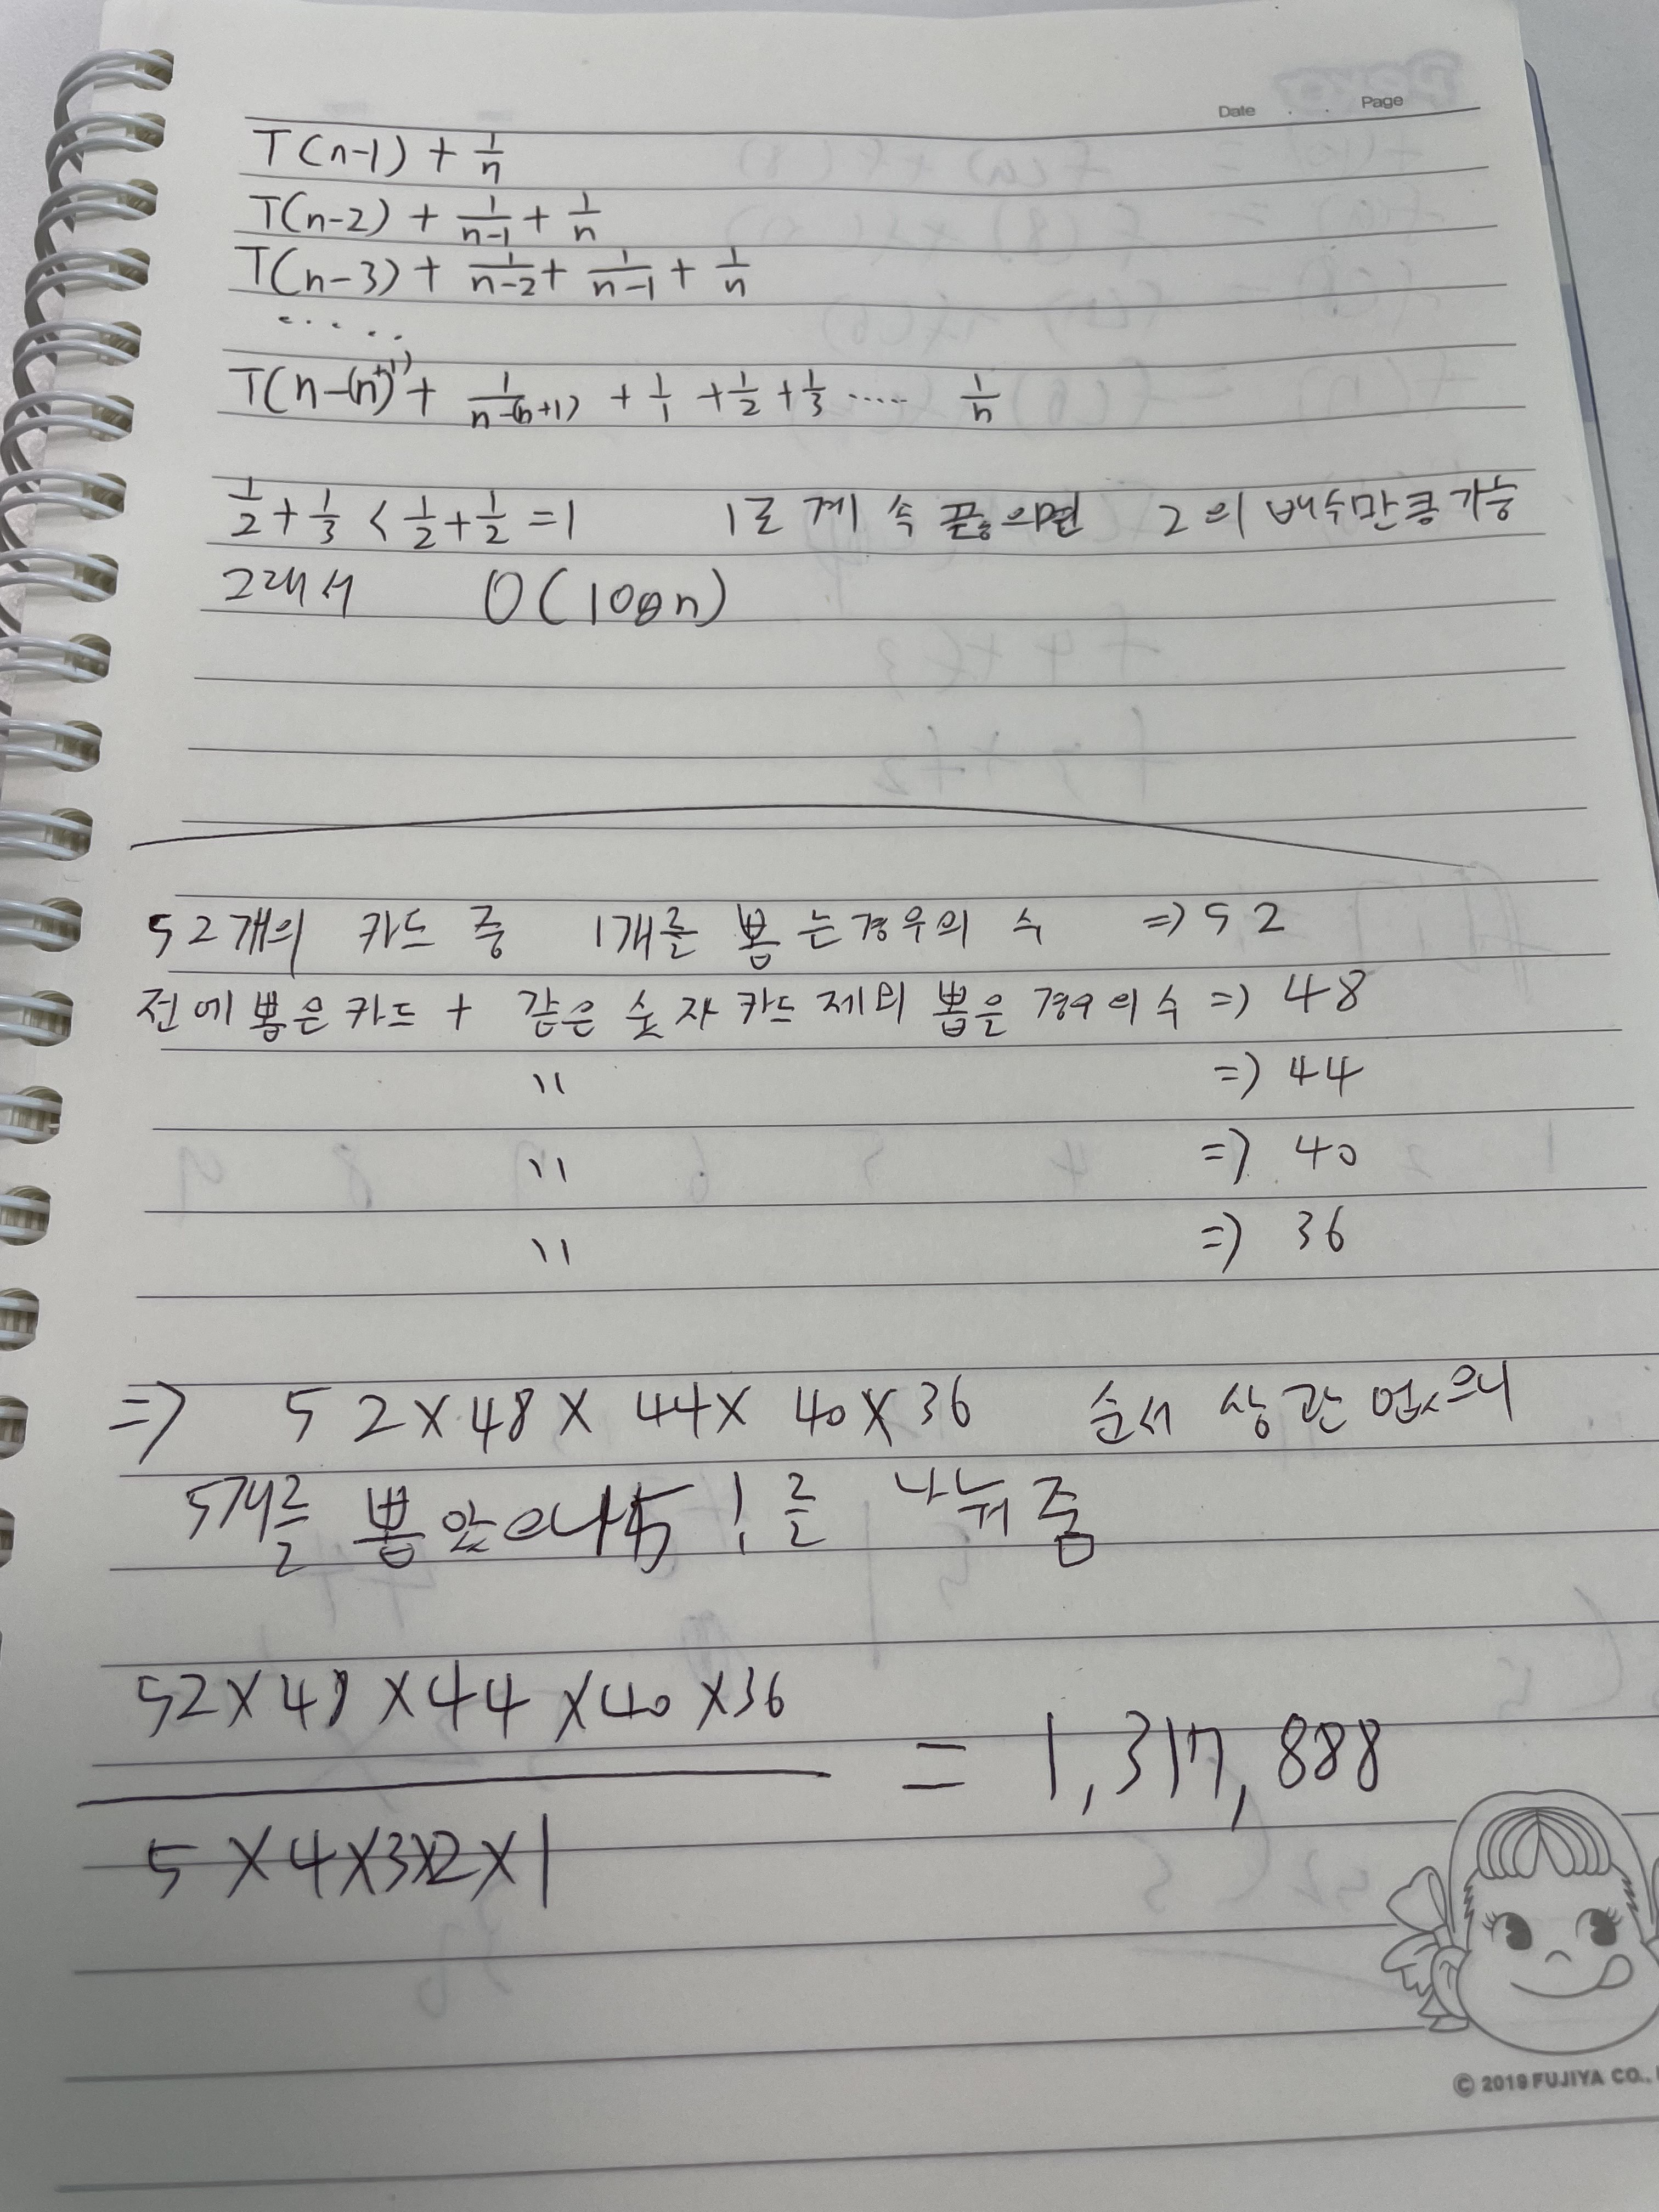 Date . . Page
T(n-1) + 1/n
T(n-2) + 1/(n-1) + 1/n
T(n-3) + 1/(n-2) + 1/(n-1) + 1/n
.....
T(n-(n+1)) + 1/(n-(n+1)) + 1/1 + 1/2 + 1/3 ..... 1/n
1/2 + 1/3 < 1/2 + 1/2 = 1 1로 계속 끊으면 2의 배수만큼 가능
그래서 O(logn)
52개의 카드 중 1개를 뽑는 경우의 수 => 52
전에 뽑은 카드 + 같은 숫자 카드 제외 뽑은 경우의 수 => 48
" => 44
" => 40
" => 36
=> 52 X 48 X 44 X 40 X 36 순서 상관 없으니
5개를 뽑았으니 5!를 나눠줌
52 X 48 X 44 X 40 X 36
= 1,317,888
5 X 4 X 3 X 2 X 1
© 2019 FUJIYA CO.,